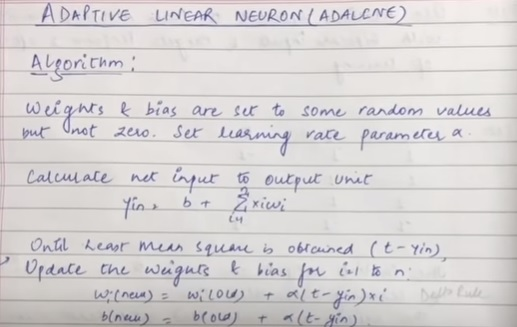 ADAPTIVE LINEAR NEURON (ADALINE)
Algorithm:
Weights & bias are set to some random values
but not zero. Set learning rate parameter α.
Calculate net input to output unit
Yin = b + n Σ i=1 xiwi
Until Least Mean Square is obtained (t - yin),
Update the weights & bias for i=1 to n:
wi(new) = wi(old) + α(t - yin)xi Delta Rule
b(new) = b(old) + α(t - yin)